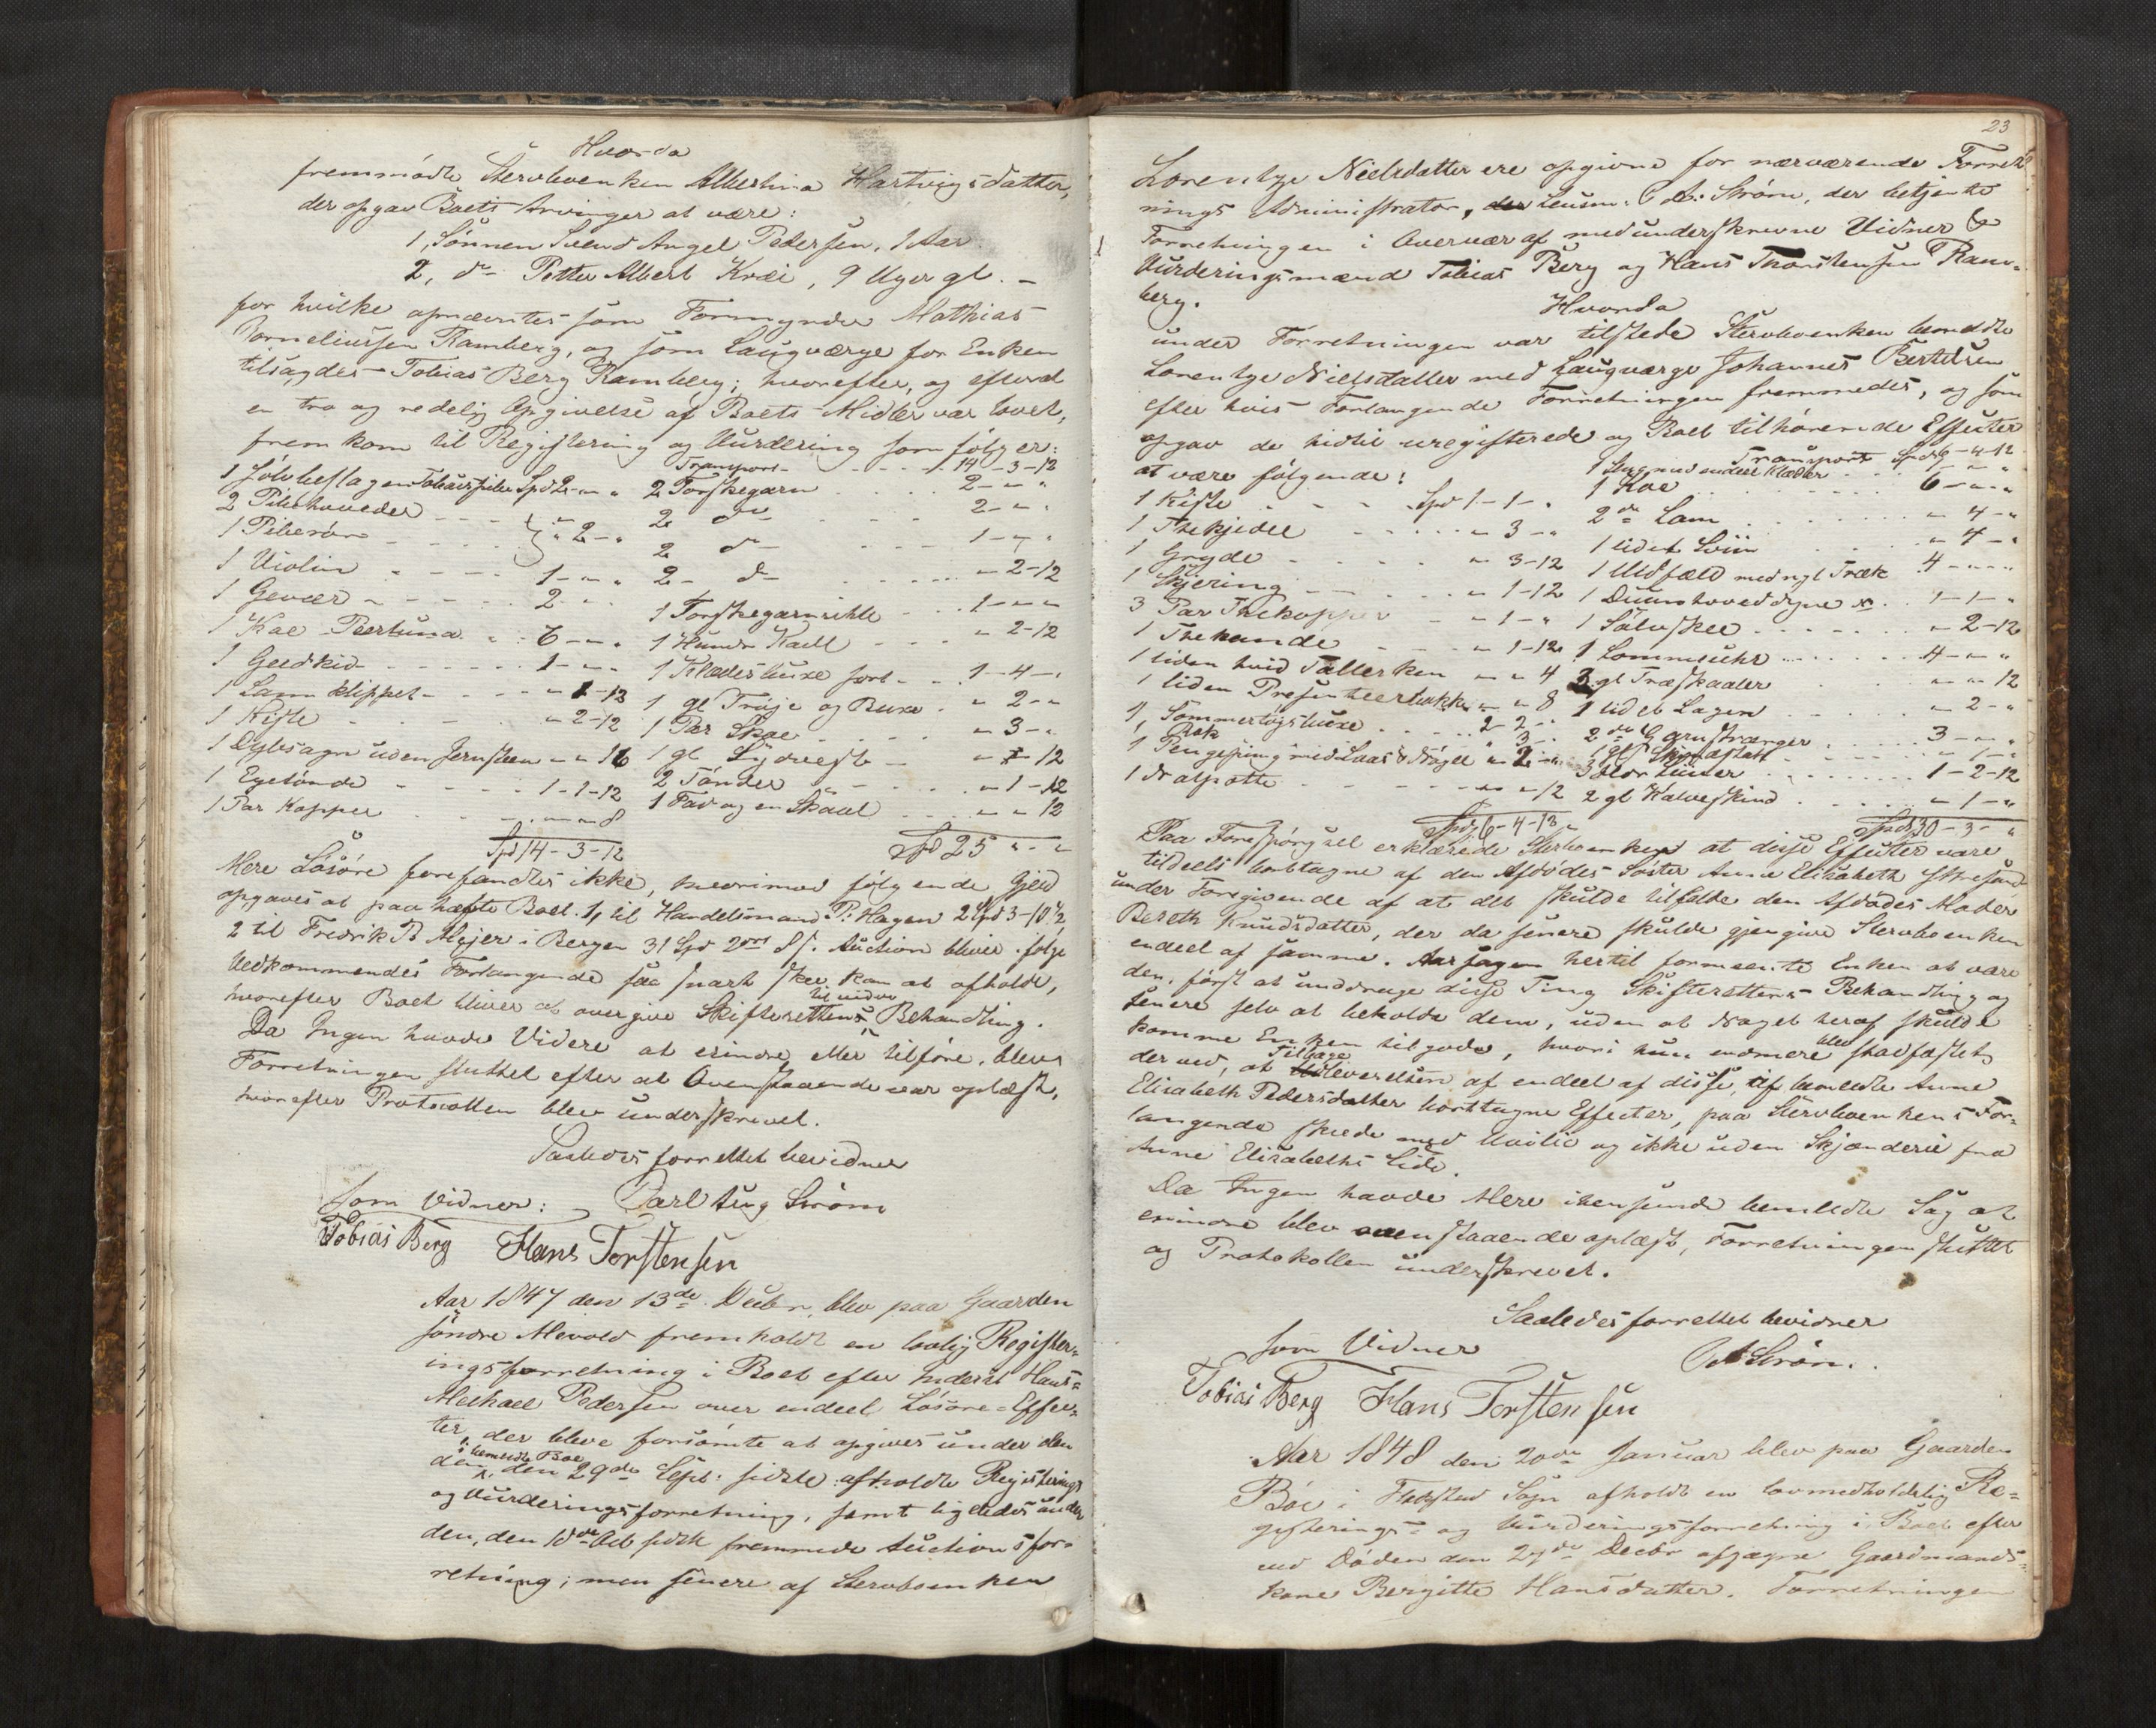 Hvorda
fremmødte Stervboenken Albertina Hartvigsdatter,
der opgav Boets Arvinger at være:
1, Sønnen Svend Angel Pedersen, 1 Aar
2, do Petter Albert Kræi, 9 Uger gl. -
for hvilke opnævntes som Formynder Mathias
Korneliussen Ramberg, og som Laugværge for Enken
tilsagdes Tobias Berg Ramberg; hvorefter, og efterat
en tro og redelig Opgivelse af Boets Midler var lovet,
frem kom til Registering og Vurdering som følger:
1 sølvbeslagen Tobakspibe Spd 2 - " - "
2 Pibehoveder
1 Piberør " 2 - "
1 Violin 1 - " - "
1 Gevær 2 - " - "
1 Koe Perluna 6 - " - "
1 Geedkid 1 - " - "
1 Lam klippet " 1 - 12
1 Kiste " 2 - 12
1 Dybsagn uden Jernsteen " " 16
1 Egetønde 1 - 1 - 12
1 Par Kopper " - " - 8
Spd 14 - 3 - 12
Transport 14 - 3 - 12
2 Torskegarn 2 - " - "
2 do 2 - " - "
2 do 1 - " - "
2 - do " 2 - 12
1 Torskegarnsihle 1 - " - "
1 Hunde Kadl " 2 - 12
1 Klædesbuxe sort 1 - 4 - "
1 gl Trøje og Buxe " 2 - "
1 Par Skoe " 3 - "
1 gl Sydvest " - " 12
2 Tønder " 1 - 12
1 Fad og en Skaal " - " 12
Spd 25 " - "
Mere Løsøre forefandtes ikke, hvorimod følgende Gjeld
opgaves at paa hæfte Boet. 1, til Handelsmand P: Hagen 2 Spd 3 - 10 1/2
2 til Fredrik D Mejer i Bergen 31 Spd 2 ort 8 s. Auction bliver ifølge
Vedkommendes Forlangende saa snart skee kan at afholde,
hvorefter Boet bliver at overgive Skifterettens til videre Behandling.
Da Ingen havde Videre at erindre eller tilføre, blev
Forretningen sluttet efter at Ovenstaaende var oplæst,
hvorefter Protocollen blev underskrevet.
Saaledes forrettet bevidner
Som Vidner: Carl Aug Strøm
Tobias Berg Hans Torstensen
Aar 1847 den 13de Decbr, blev paa Gaarden
søndre Mevold fremholdt en lovlig Register-
ingsforretning i Boet efter Inderst Hans
Mechael Pedersen over endeel Løsøre-Effec-
ter, der bleve forsømte at opgives under den
den i bemeldte Boe den 29de Sept: sidste afholdte Registerings
og Vurderingsforretning, samt ligeledes under
den, den 18de Oct sidst fremmede Auctionsfor-
retning; men senere af Stervboenken
23
Lorentze Nielsdatter ere opgivne for nærværende Forret-
nings Administrator, Lensm: C A: Strøm, der betjente
Forretningen i Overvær af medunderskrevne Vidner &
Vurderingsmænd Tobias Berg og Hans Thorstensen Ram-
berg.
Hvorda
under Forretningen var tilstede Stervboenken bemeldte
Lorentze Nielsdatter med Laugværge Johannes Bertelsen
efter hvis Forlangende Forretningen fremmedes, og som
opgav de hidtil uregisterede og Boet tilhørende Effecter
at være følgende:
1 Kiste Spd 1 - 1 - "
1 Thekjedel " 3 - "
1 Gryde " 3 - 12
1 Skjering " 1 - 12
3 Par Thekopper " 1 - "
1 Thekande " 1 - 12
1 liden hvid Tallerken " " 4
1 liden Presenteerbakke " " 8
1, Sommertøgsbuxe 2 - 2 - "
1 Rok " 3 - "
1 Pengepung med Laas & Nøgel " 2 - "
1 Natpotte " - " 12
Spd 6 - 4 - 12
Transport Spd 6 - 4 - 12
1 Seng med endeel Klæder " - "
1 Koe 6 - " - "
2de Lam " 4 - "
1 lidet Sviin " 4 - "
1 Uldfæld med nyt Træk 4 - " - "
1 Duunhoveddyne 1 - 1 - "
1 Sølvskee " 2 - 12
1 Lommeuhr 4 - " - "
3 gl Træskaaler " - " 12
1 lidet Lagen " 2 - "
2de Garnstrænger 3 - " - "
" 1 - "
1 - 2 - 12
2 gl Kalveskind " 1 - "
Spd 30 - 3 - "
Paa Forespørgsel erklærede Stervboenken at disse Effecter vare
tildeels borttagne af den Afdødes Søster Anne Elisabeth
under Foregivende af at det skulde tilfalde den Afdødes Moder
Bereth Knudsdatter, der da senere skulde gjengive Stervboenken
endeel af samme. Aarsagen hertil formeente Enken at være
den, først at unddrage disse Ting Skifterettens Behandling og
senere selv at beholde dem, uden at Noget heraf skulde
komme Enken tilgode, hvori hun endmere blev stadfæstet
derved, at Tilbageleverelsen af endeel af disse, af bemeldte Anne
Elisabeth Pedersdatter borttagne Effecter, paa Stervboenkens For-
langende skeede med Uvilie og ikke uden Skjænderie fra
Anne Elisabeths Side.
Da Ingen havde Mere ihenseende bemeldte Sag at
erindre blev ovenstaaende oplæst, Forretningen sluttet
og Protokollen underskrevet.
Saaledes forrettet bevidner
Som Vidner CAStrøm.
Tobias Berg Hans Torstensen
Aar 1848 den 20de Januar blev paa Gaarden
Bøe i Flagstad Sogn afholdt en lovmedholdelig Re-
gisterings- og Vurderingsforretning i Boet efter
ved Døden den 27de Decbr afgagne Gaardmands-
kone Bergitte Hansdatter. Forretningen